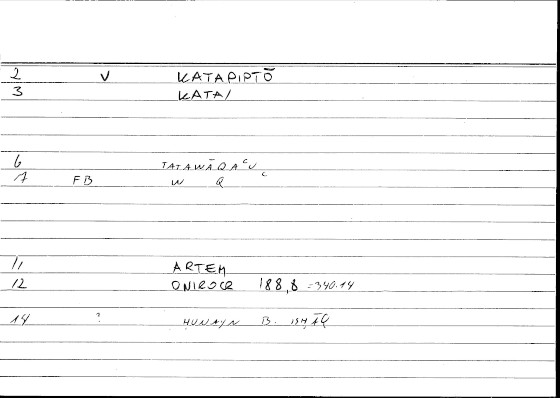 2 V KATAPIPTŌ
3 KATA/
6 TATAWĀQAʿU
7 FB W Q ʿ
11 ARTEM
12 ONIROCR 188,8 =340.14
14 ? ḤUNAYN B. ISḤĀQ